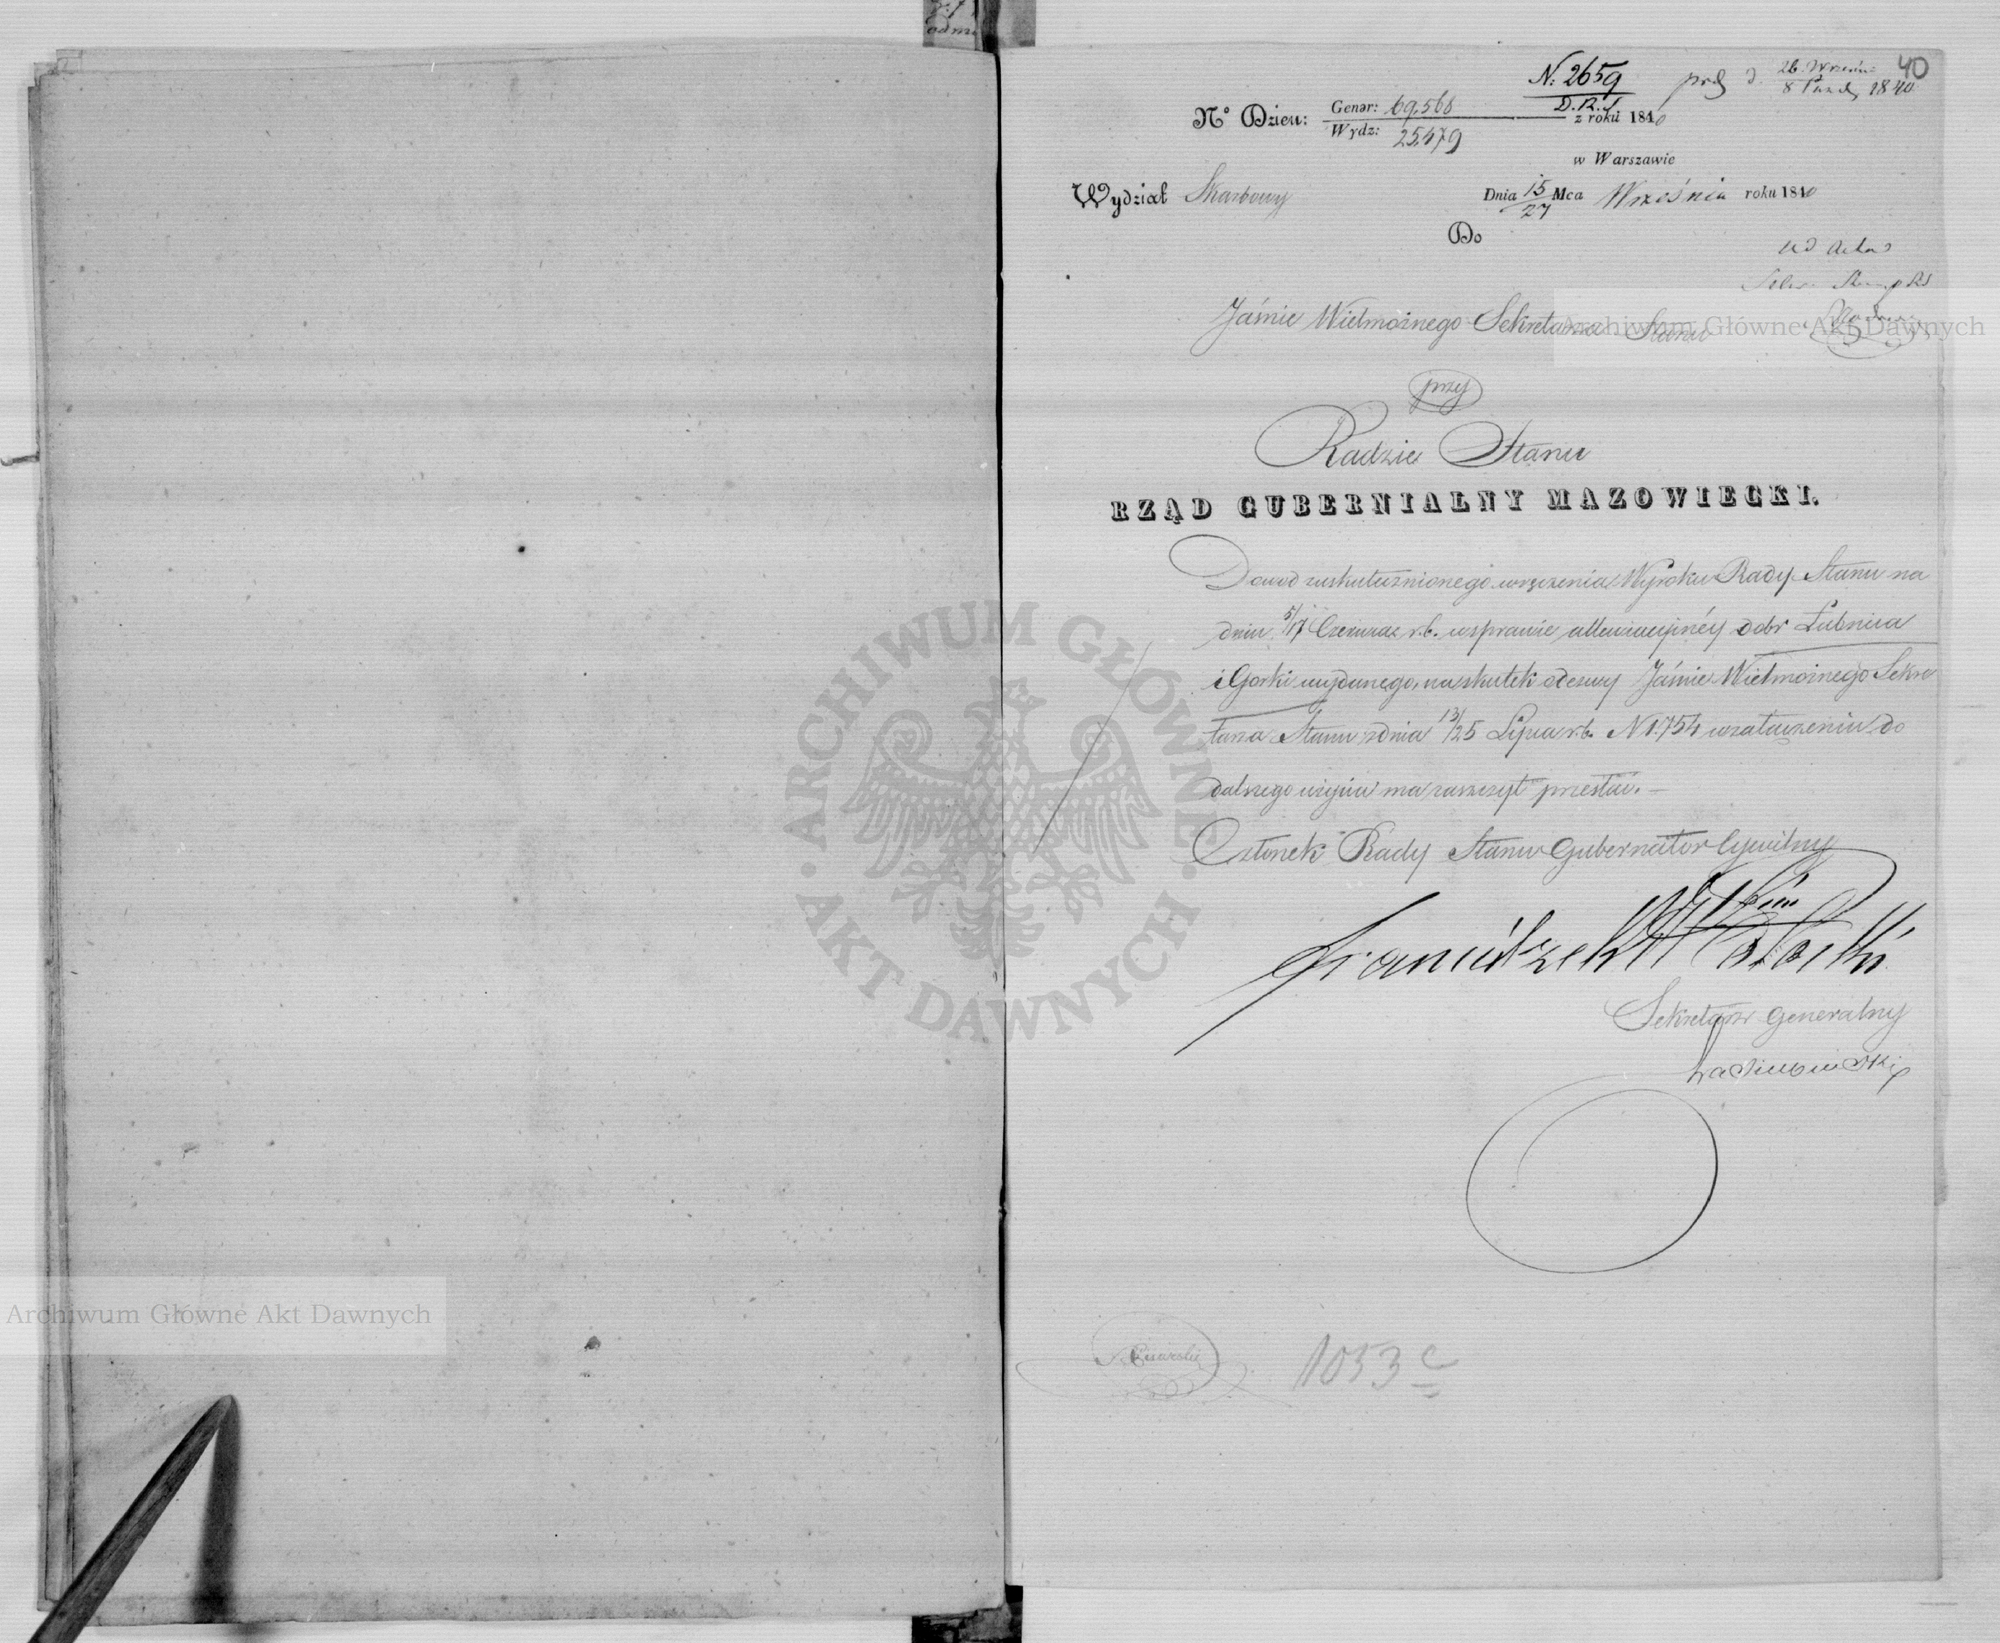 40
N: 2659
D.R.S
prds d. 26. Wrześn: / 8 Paźdz 1840
N° Dzien: Gener: 69,568 z roku 1840
Wydz: 25,479
w Warszawie
Wydział Skarbowy Dnia 15/27 Mca Września roku 1840
Do
ad acta
Jaśnie Wielmożnego Sekretarza Stanu
przy
Radzie Stanu
RZĄD GUBERNIALNY MAZOWIECKI.
Dowod uskutecznionego wręczenia Wyroku Rady Stanu na
dniu 5/17 Czerwca r.b. w sprawie allewiacyjnéy dobr Lubnica
i Gorki wydanego, na skutek odezwy Jaśnie Wielmożnego Sekre
tarza Stanu z dnia 13/25 Lipca r.b. N 1.754 w załączeniu do
dalszego użycia ma zaszczyt przesłać. —
Członek Rady Stanu Gubernator Cywilny
Franciszek Potocki
Sekretarz Generalny
1053 c
Archiwum Główne Akt Dawnych
Archiwum Główne Akt Dawnych
ARCHIWUM GŁÓWNE AKT DAWNYCH